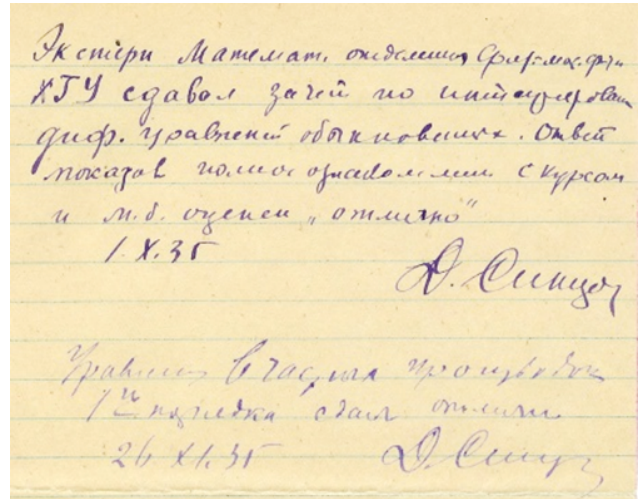 Экстерн Математ. отделения Физ.-мех. фак.
ХГУ сдавал зачет по интегрирован.
диф. уравнений обыкновенных. Ответ
показал полное ознакомление с курсом
и м.б. оценен „отлично“
1.X.35
Д. Синцов
Уравнения в частных производн.
1го порядка сдал отлично
26.XI.35
Д. Синцов